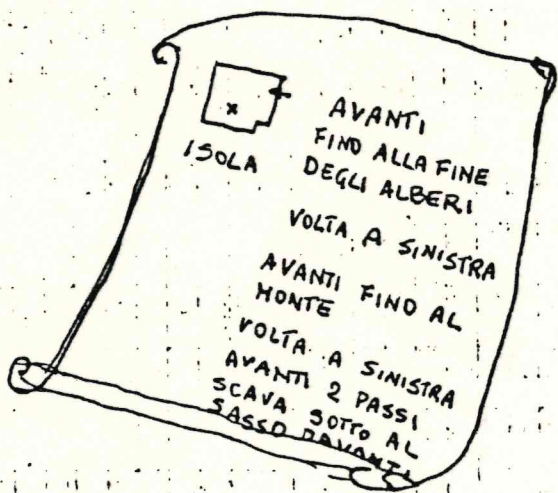 ISOLA
AVANTI
FINO ALLA FINE
DEGLI ALBERI
VOLTA A SINISTRA
AVANTI FINO AL
MONTE
VOLTA A SINISTRA
AVANTI 2 PASSI
SCAVA SOTTO AL
SASSO DAVANTI